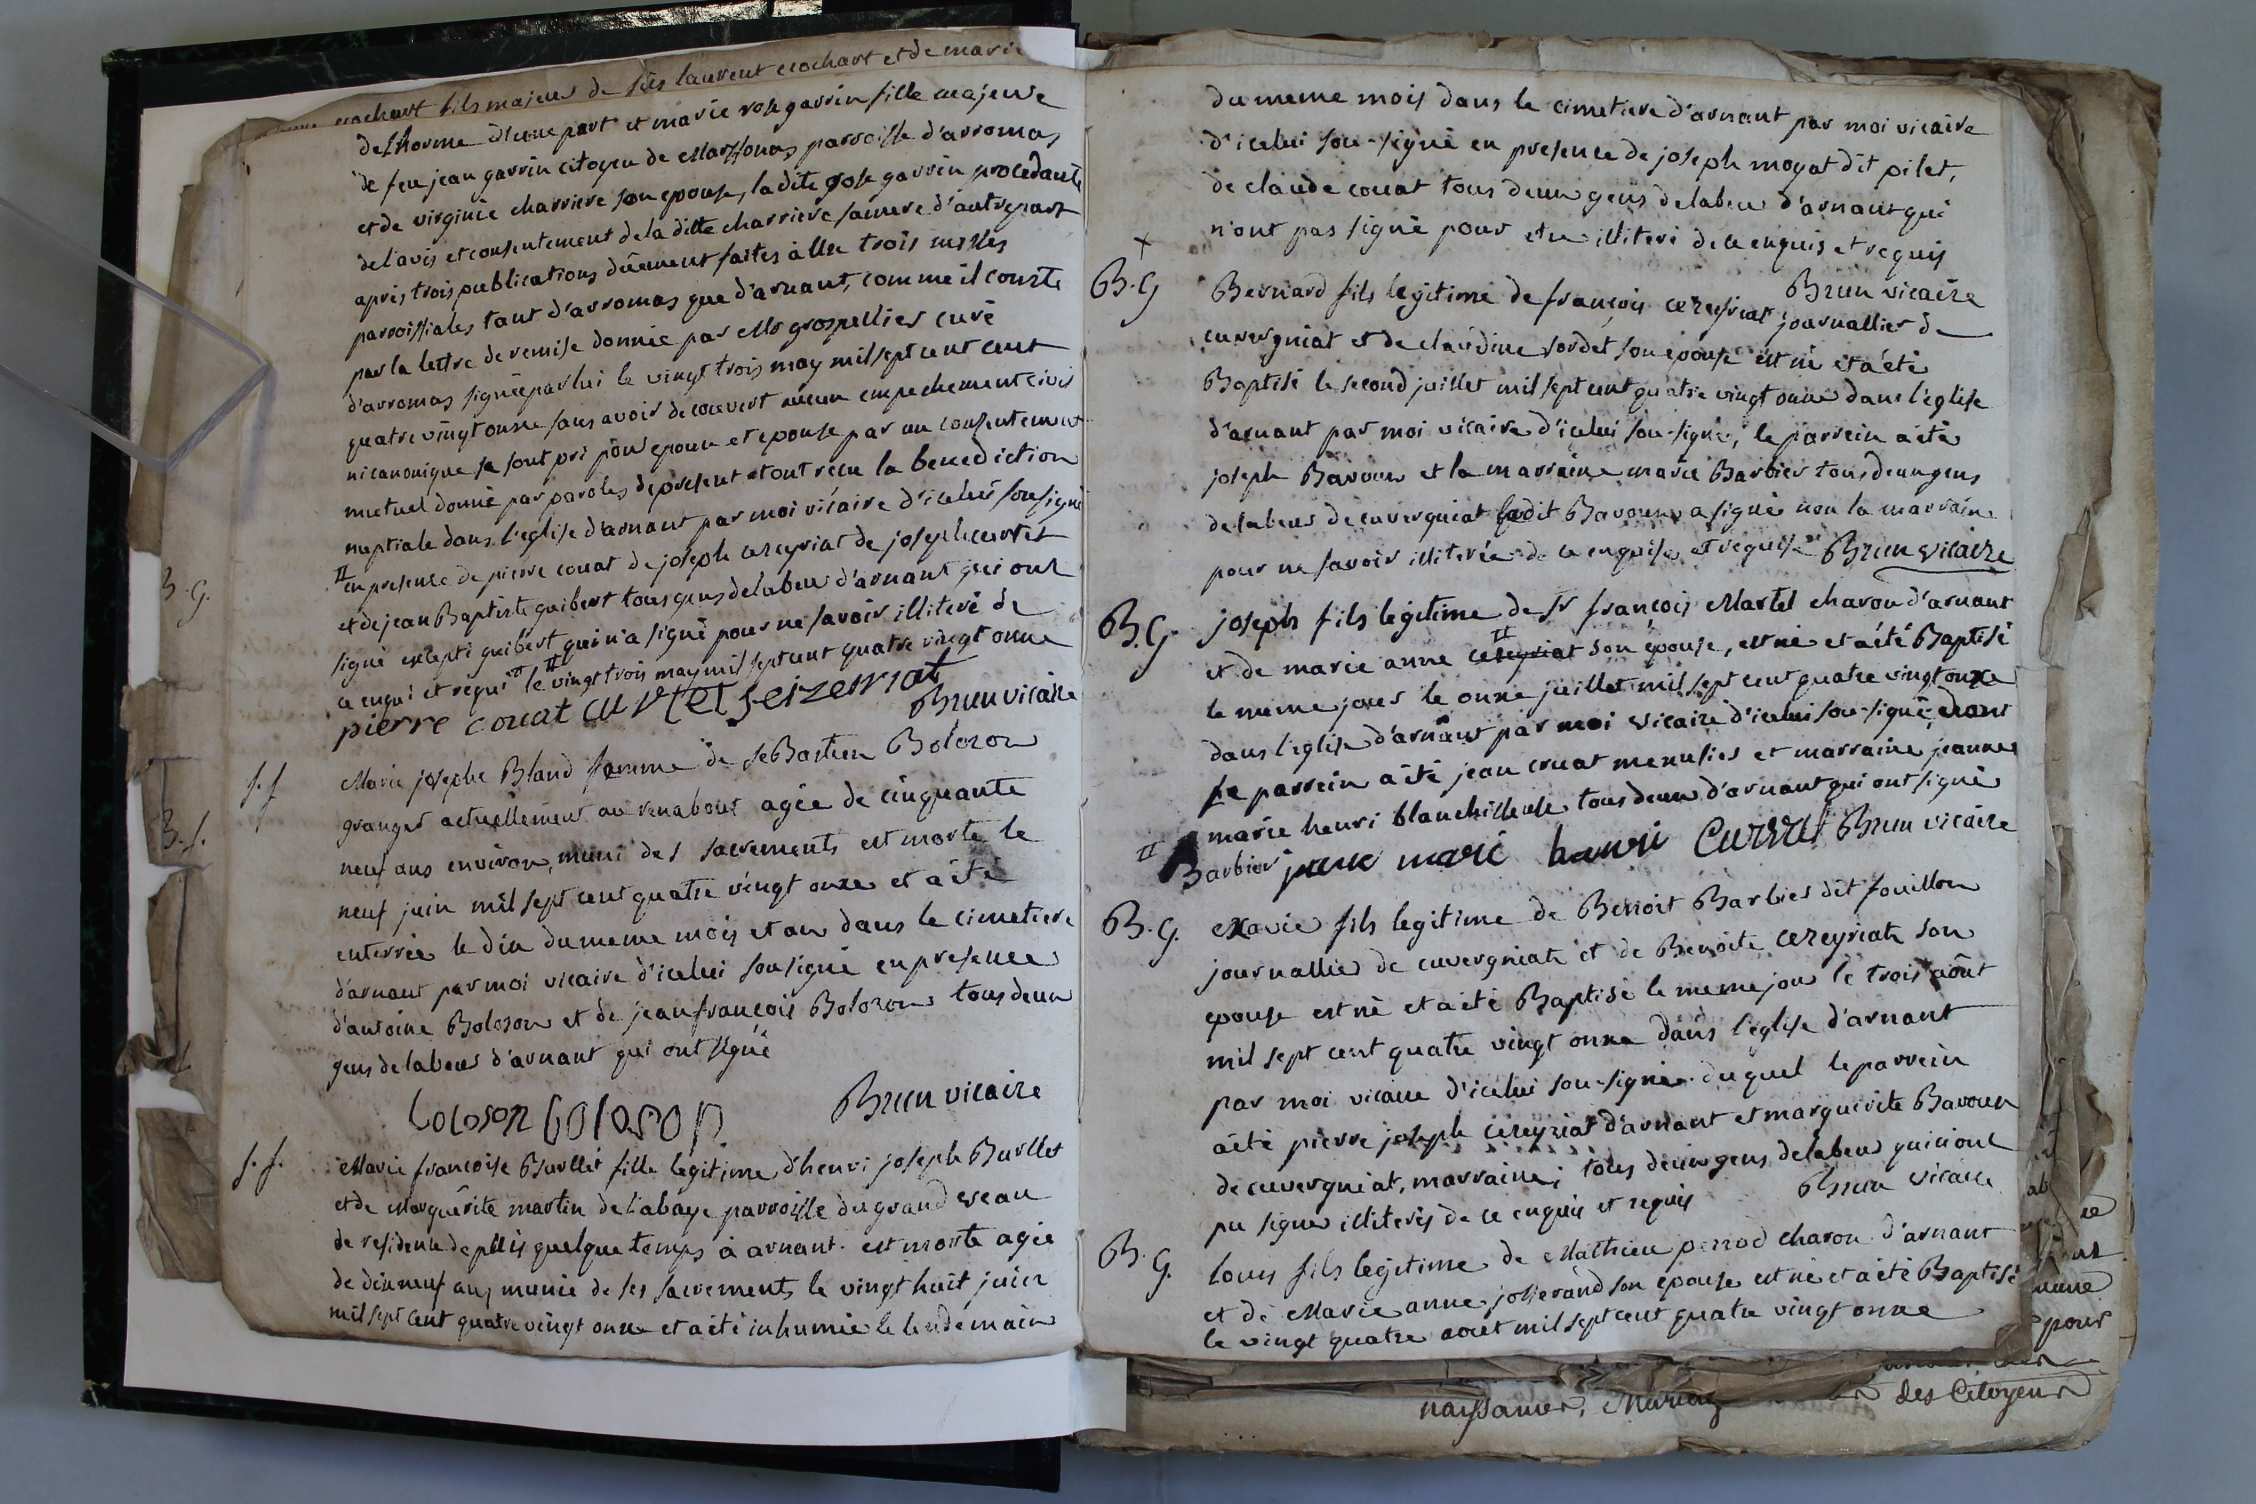 cochart fils majeur de feus laurent cochart et de marie
de Thorme d'une part et marie rose gavvin fille majeure
de feu jean gavvin citoyen de Marsonas parroisse d'arromas
et de virginie charriere son epouse, la dite rose gavvin procedante
de l'avis et consentement de la ditte charriere sa mere d'autre part
après trois publications düement faites à l'issue trois messes
parroissiales tant d'arromas que d'arnant, comme il conste
par la lettre de remise donnée par Mr grospellier curé
d'arromas signée par lui le vingt trois may mil sept cent
quatre vingt onze sans avoir decouvert aucun empechement civil
ni canonique se sont pri pour epoux et epouse par un consentement
mutuel donné par paroles de present et ont recu la benediction
nuptiale dans l'eglise d'arnant par moi vicaire d'icelui sousigné
en presence de pierre couat de joseph cezeyriat de joseph curtet
et de jean Baptiste guibert tous gens de labeur d'arnant qui ont
signé excepté guibert qui n'a signé pour ne savoir illiteré de
ce enqui et requi le vingt trois may mil sept cent quatre vingt onze
pierre couat curtet seizerriat
Brun vicaire
B.G.
B.S.
S.f
Marie josephe Bland femme de seBastien Bolozon
granger actuellement au renabour agée de cinquante
neuf ans environ, muni des sacrements est morte le
neuf juin mil sept cent quatre vingt onze et a été
enterrée le dix du meme mois et an dans le cimetiere
d'arnant par moi vicaire d'icelui sousigné en presence
d'antoine Bolozon et de jean françois Bolozon tous deux
gens de labeur d'arnant qui ont signé
bolozon bolozon Brun vicaire
S.f.
Marie françoise Burllet fille legitime d'henri joseph Burllet
et de Marguerite martin de l'abaye parroisse du grand
de residence depuis quelque temps à arnant est morte agée
de dixneuf ans munie de ses sacrements le vingt huit juin
mil sept cent quatre vingt onze et a été inhumée le lendemain
du meme mois dans le cimetiere d'arnant par moi vicaire
d'icelui sou-signé en presence de joseph moyat dit pilet,
de claude couat tous deux gens de labeur d'arnant qui
n'ont pas signé pour etre illiteré de ce enquis et requis
Brun vicaire
B.G
Bernard fils legitime de françois cezeyriat journallier de
cuvergniat et de claudine sordet son epouse est né et a été
Baptisé le second juillet mil sept cent quatre vingt onze dans l'eglise
d'arnant par moi vicaire d'icelui sou-signé, le parrein a été
joseph Bavoux et la marraine marie Barbier tous deux gens
de labeur de cuvergniat ledit Bavoux a signé non la marraine
pour ne savoir illiterée de ce enquise et requise Brun vicaire
B.G.
joseph fils legitime de Sr françois Martel charon d'arnant
et de marie anne cezeyriat son epouse, est né et a été Baptisé
le meme jour le onze juillet mil sept cent quatre vingt onze
dans l'eglise d'arnant par moi vicaire d'icelui sou-signé dont
le parrein a été jean couat menusier et marraine jeanne
marie henri blanchisseuse tous deux d'arnant qui ont signé
Barbier jane marie henri Currat Brun vicaire
B.G.
exavié fils legitime de Benoit Barbier dit fouillon
journallier de cuvergniat et de Benoite cezeyriat son
epouse est né et a été Baptisé le meme jour le trois août
mil sept cent quatre vingt onze dans l'eglise d'arnant
par moi vicaire d'icelui sou-signé duquel le parrein
a été pierre joseph cezeyriat d'arnant et marguerite Bavoux
de cuvergniat, marraine; tous deux gens de labeur qui n'ont
pu signer illiterés de ce enquis et requis Brun vicaire
B.G.
louis fils legitime de Mathieu perrod charon d'arnant
et de Marie anne josserand son epouse est né et a été Baptisé
le vingt quatre aout mil sept cent quatre vingt onze
pour
naissances, Mariag des Citoyens